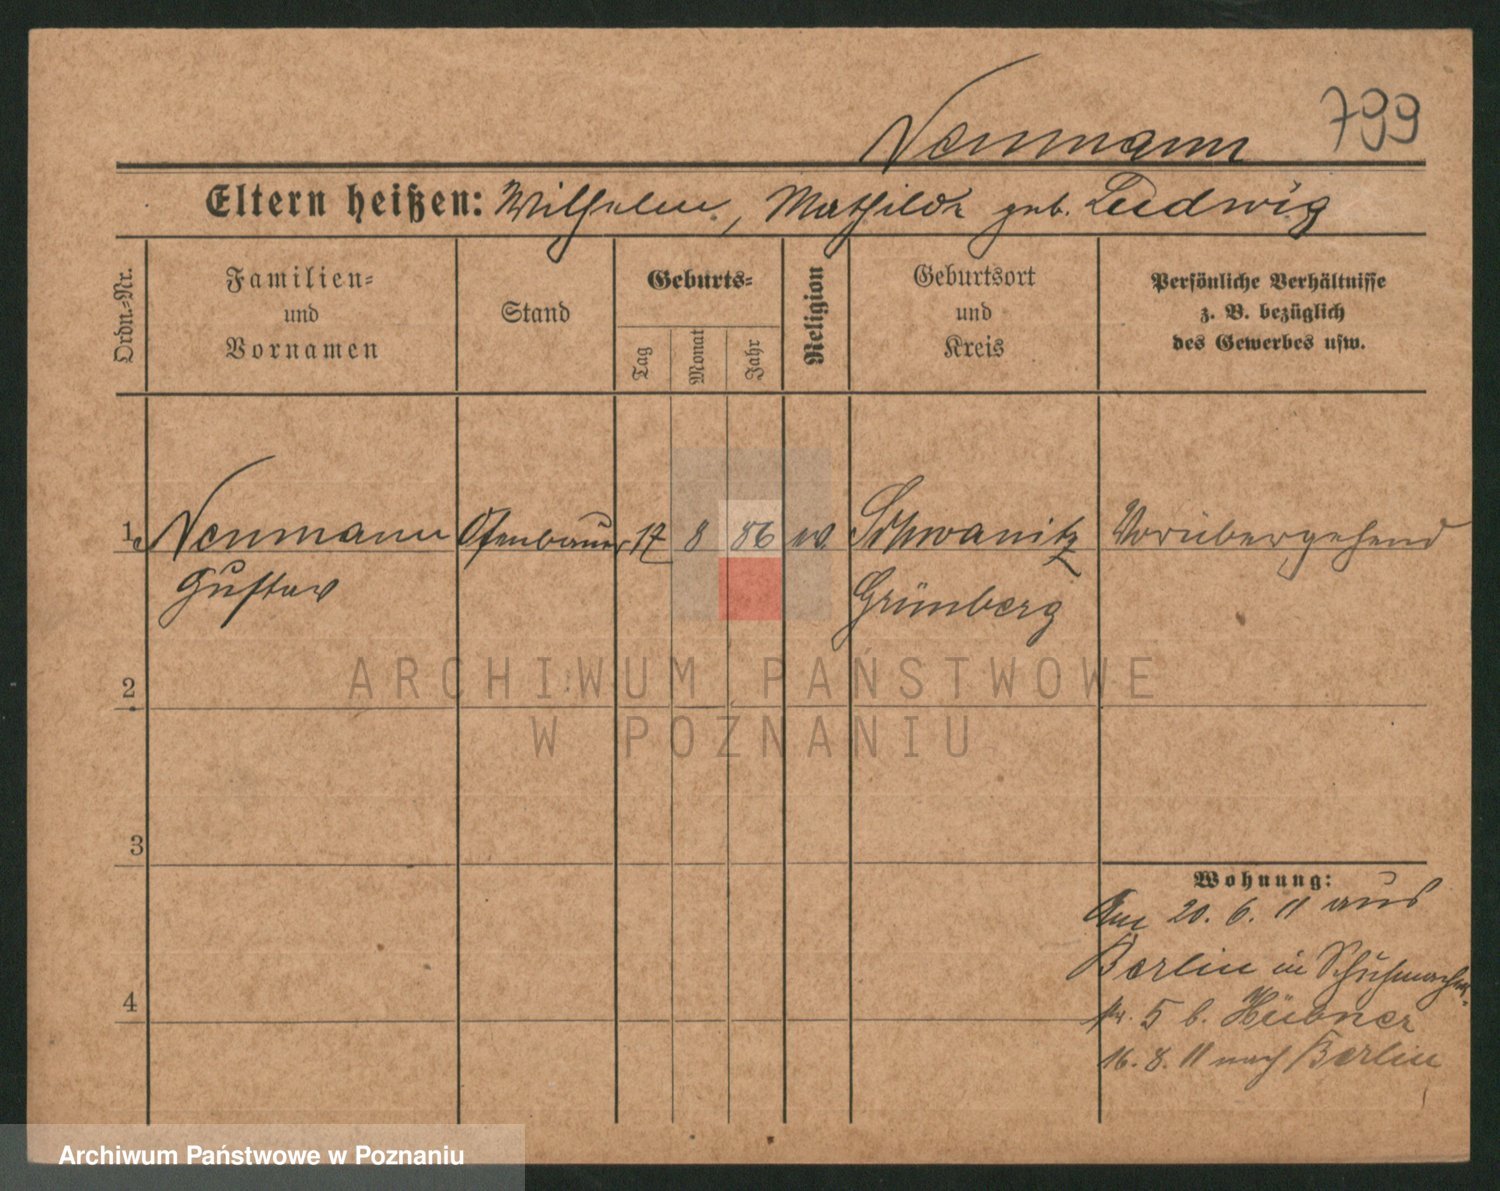 Neumann 799
Eltern heißen: Wilhelm, Mathilde geb. Ludwig
Ordn.-Nr.
Familien-
und
Vornamen
Stand
Geburts-
Tag
Monat
Jahr
Religion
Geburtsort
und
Kreis
Persönliche Verhältnisse
z. B. bezüglich
des Gewerbes usw.
1. Neumann Ofenbauer 17 8 86 ev. Schwanitz Vorübergehend
Gustav Grünberg
2
3
4
Wohnung:
Am 20. 6. 11 aus
Berlin in Schuhmacher-
str. 5 b. Hübner
16. 8. 11 nach Berlin
ARCHIWUM PAŃSTWOWE
W POZNANIU
Archiwum Państwowe w Poznaniu